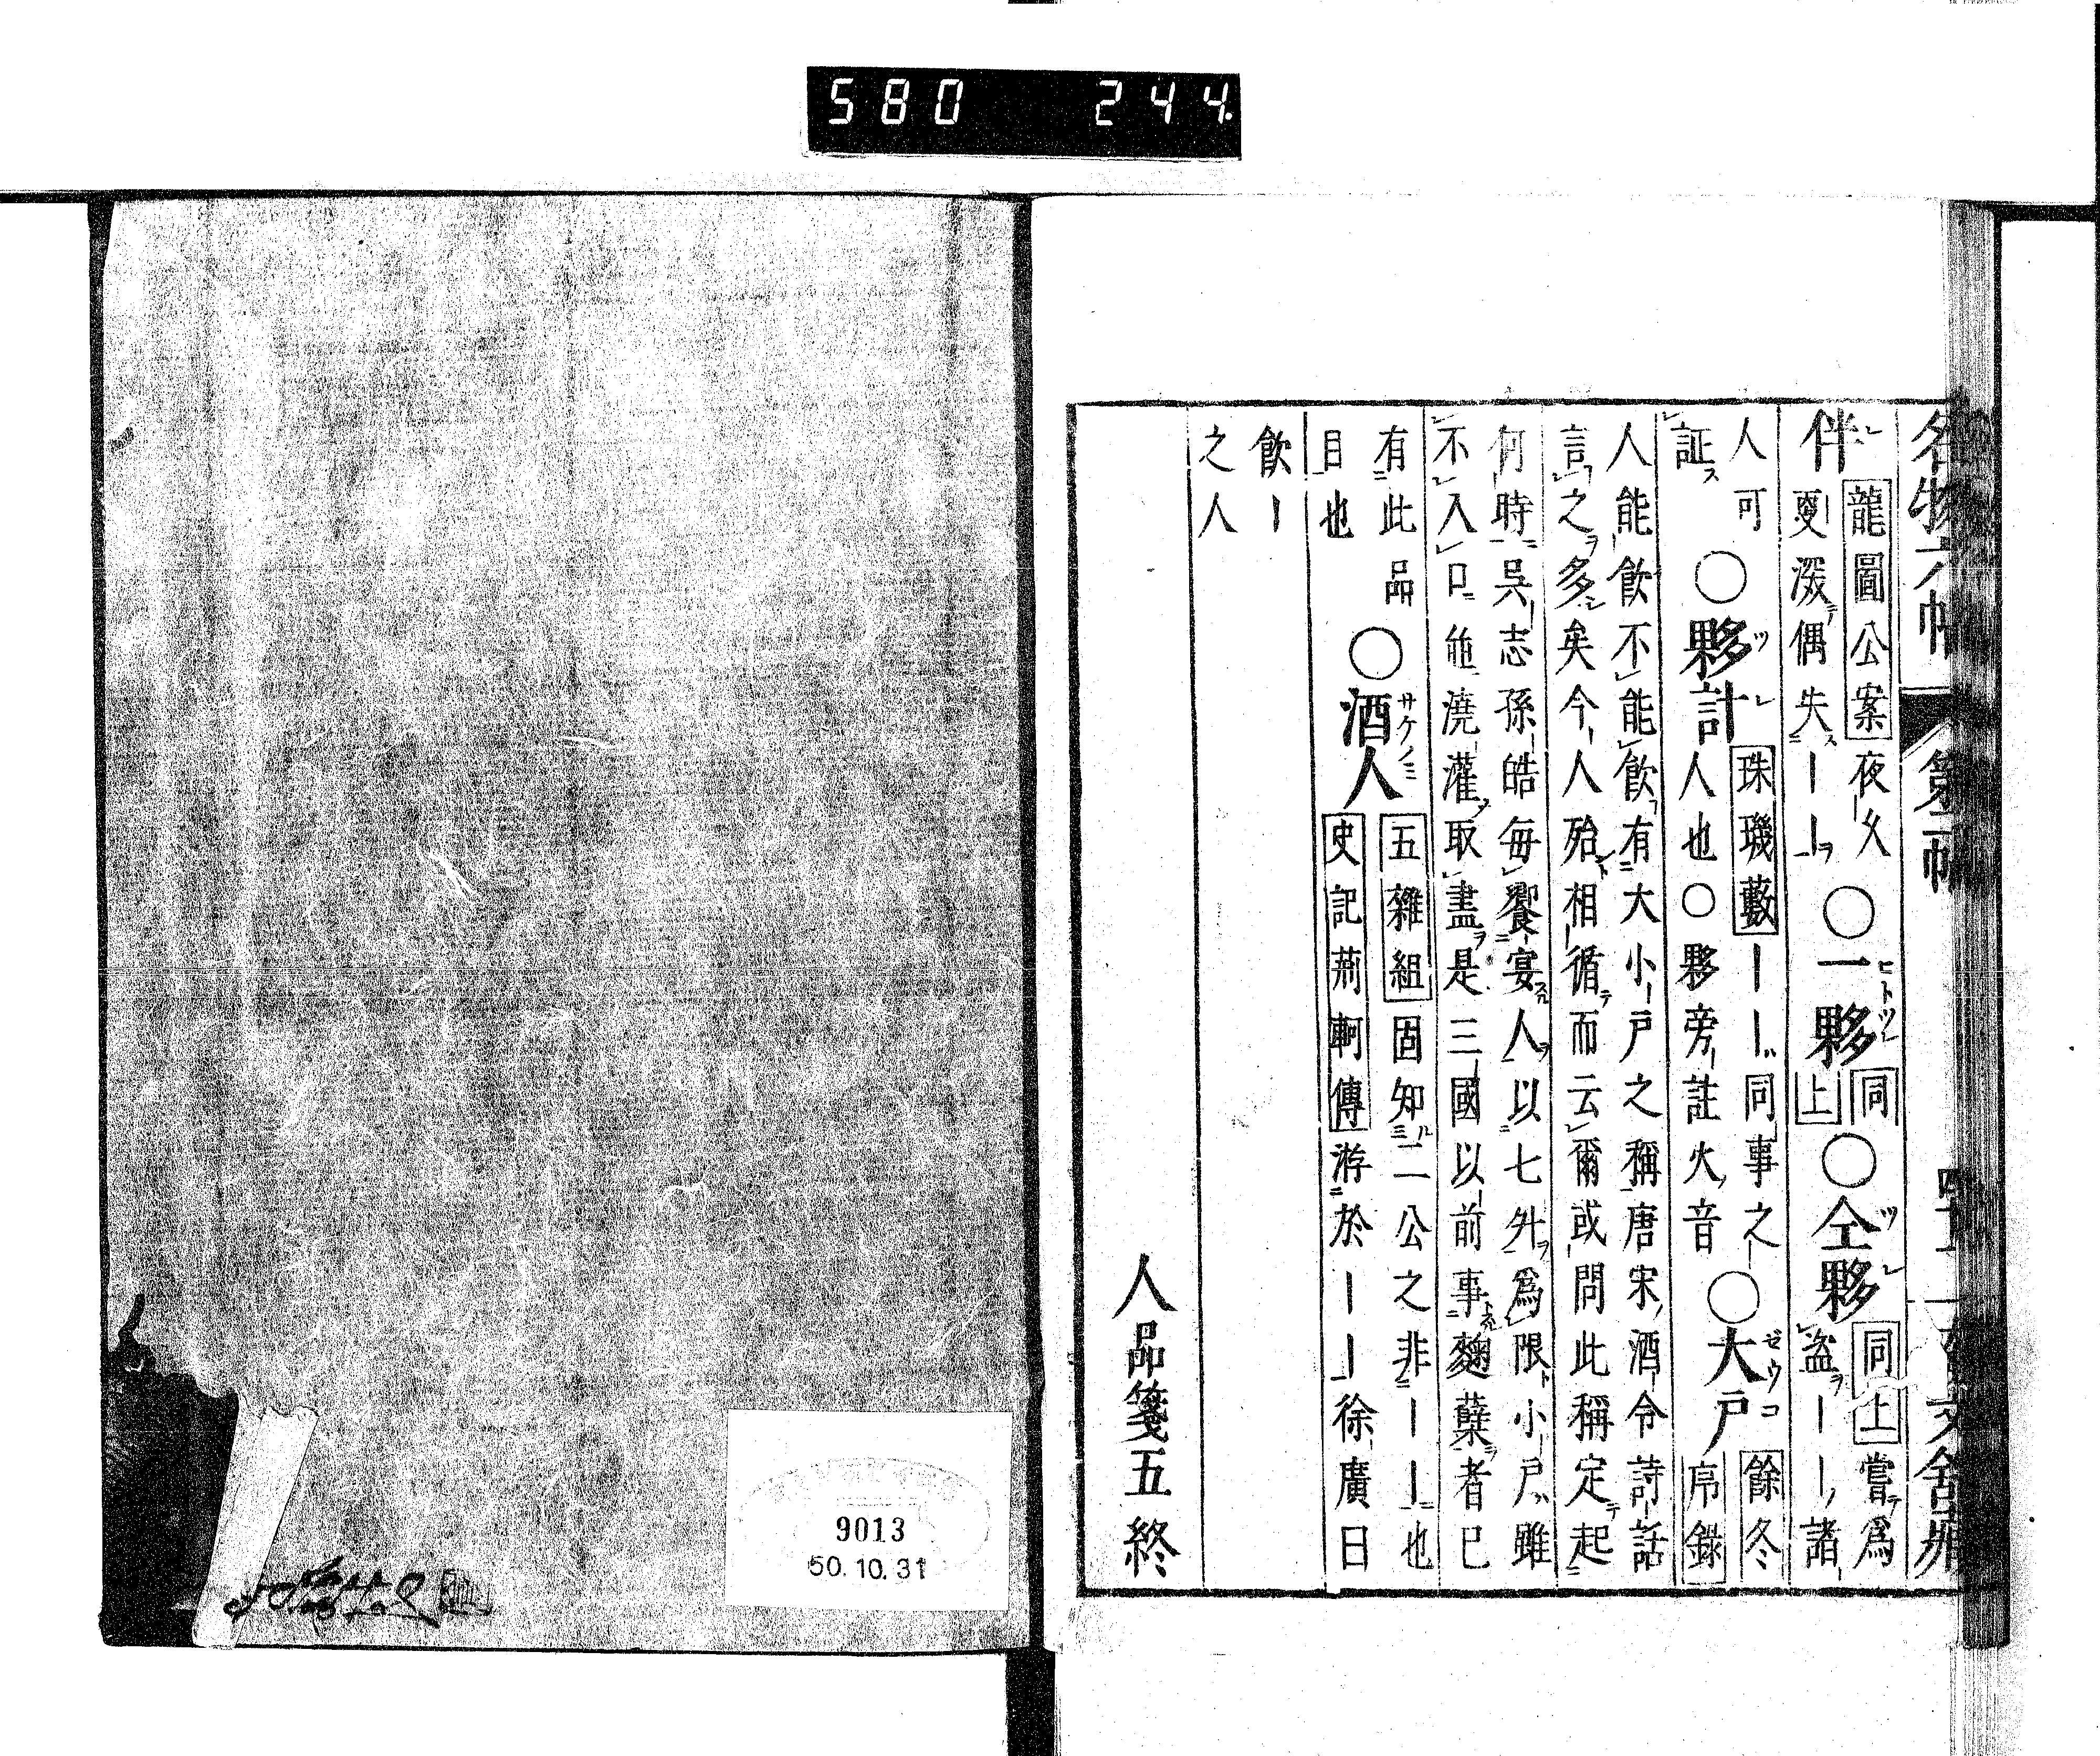 580 244
名物六帖
第二帖
伴 龍圖公案 夜久
更深偶失ーー ○一夥 同上 ○仝夥 同上 嘗爲
盜ーー諸
人可
証 ○夥計 珠璣藪 ーー同事之
人也○夥旁註火音 ○大戸 餘冬序錄
人能飲不能飲有大小戸之稱唐宋酒令詩話
言之多矣今人殆相循而云爾或問此稱定起
何時吳志孫皓每饗宴人以七升爲限小戸雖
不入口 澆灌取盡是三國以前事麴蘖者已
有此品
目也 ○酒人 五雜組 固知二公之非ーー也
史記荊軻傳 游於ーー徐廣曰
飲ー
之人
人品箋五終
9013
50.10.31